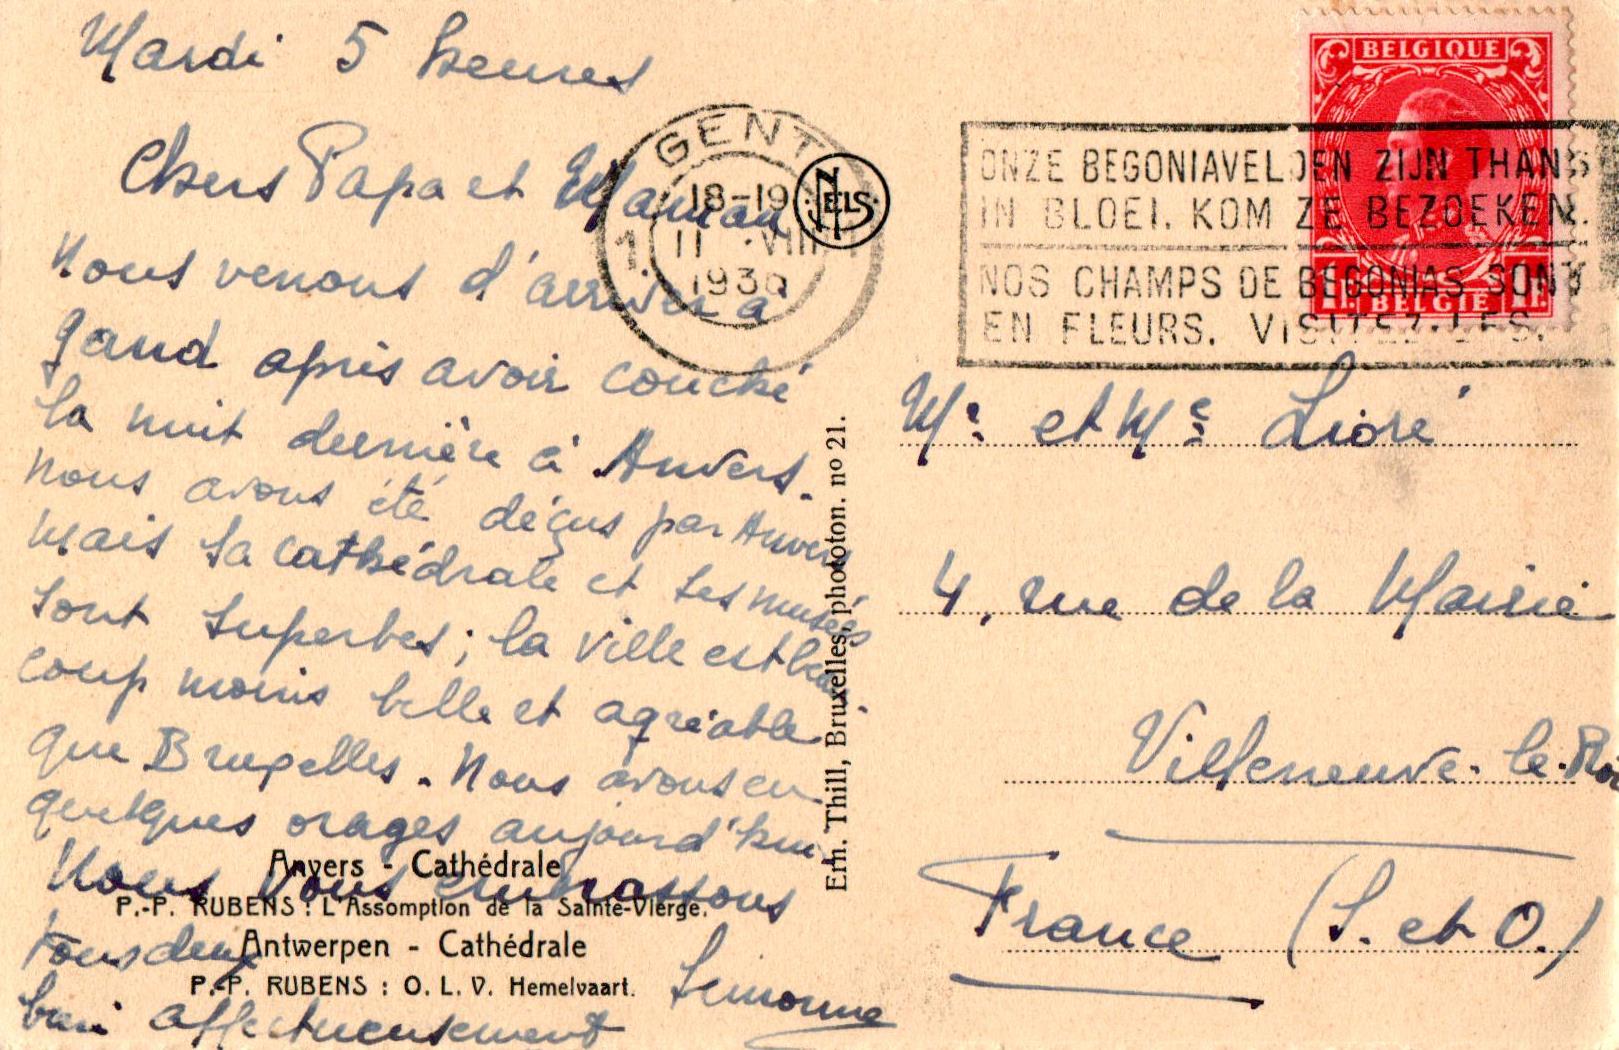 Mardi 5 heures
Chers Papa et Maman
Nous venons d'arriver à
Gand après avoir couché
la nuit dernière à Anvers.
Nous avons été déçus par Anvers
Mais la cathédrale et les musées
sont superbes ; la ville est beau-
coup moins belle et agréable
que Bruxelles. Nous avons eu
quelques orages aujourd'hui
Nous vous embrassons
tous deux
bien affectueusement
Simonne
Anvers - Cathédrale
P.-P. RUBENS : L'Assomption de la Sainte-Vierge.
Antwerpen - Cathédrale
P.-P. RUBENS : O. L. V. Hemelvaart.
Ern. Thill, Bruxelles, phototon. no 21.
NELS
GENT
1
18-19
11 VIII
1936
ONZE BEGONIAVELDEN ZIJN THANS
IN BLOEI. KOM ZE BEZOEKEN.
NOS CHAMPS DE BEGONIAS SONT
EN FLEURS. VISITEZ-LES.
BELGIQUE
1F BELGIË 1F.
Mr. et Me Lioré
4, rue de la Mairie
Villeneuve-le-Roi
France (S. et O.)